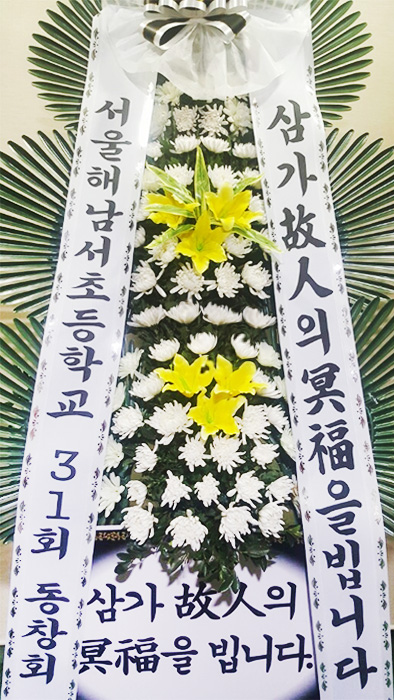 삼가故人의冥福을빕니다
서울해남서초등학교 31회 동창회
삼가 故人의
冥福을 빕니다.